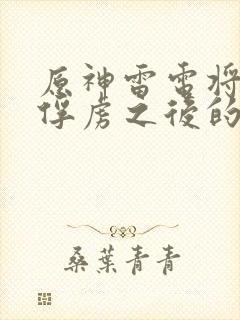 原神雷电将
俘虏之后的
桑葉青青